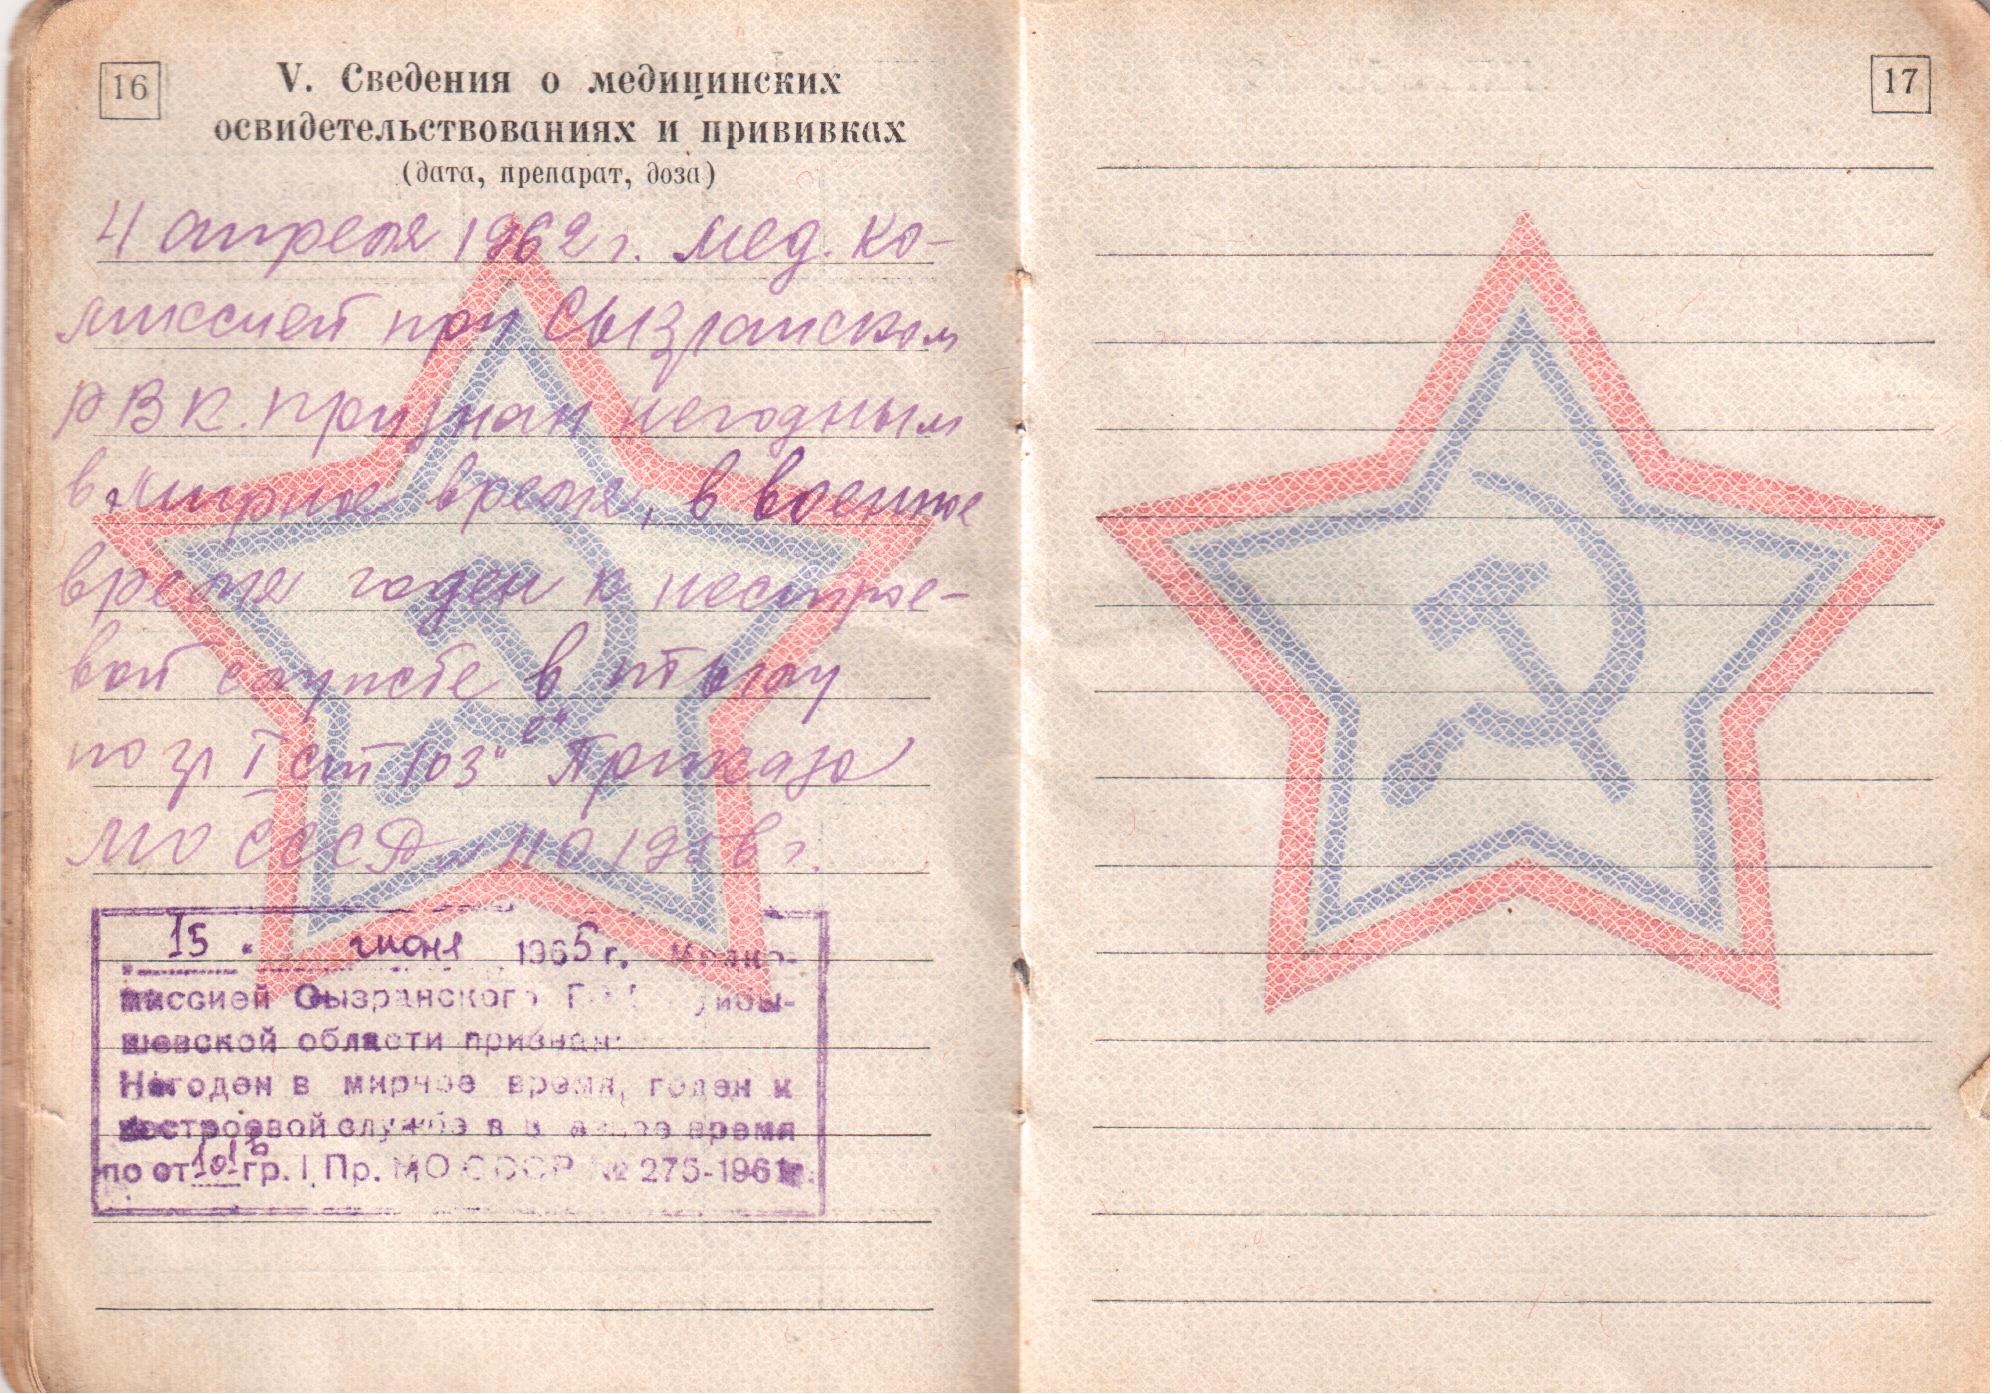 16
V. Сведения о медицинских
освидетельствованиях и прививках
(дата, препарат, доза)
4 апреля 1962 г. мед. ко-
миссией при Сызранском
РВК. признан негодным
в мирное время, в военное
время годен к нестрое-
вой службе в тылу
по гр I ст 103 "е" Приказа
МО СССР 1958 г.
15 " июня 1965 г.
миссией Сызранского
шевской области признан:
Негоден в мирное время, годен к
нестроевой службе в время
по ст 101 б гр. I Пр. МО СССР № 275-1961г.
17